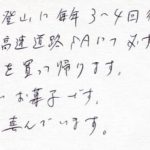 登山に毎年3～4回
高速道路PAにてむす
を買って帰ります。
お菓子です。
喜んでいます。